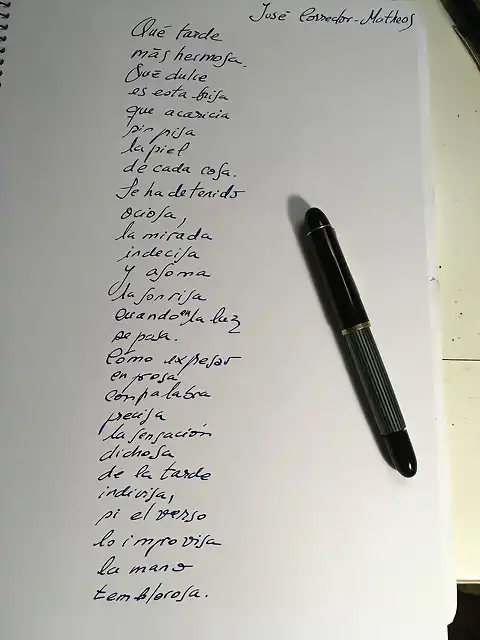 José Corredor-Matheos
Qué tarde
más hermosa.
Qué dulce
es esta brisa
que acaricia
sin prisa
la piel
de cada cosa.
Se ha detenido
ociosa,
la mirada
indecisa
y asoma
la sonrisa
cuando en la luz
se posa.
Cómo expresar
en prosa
con palabra
precisa
la sensación
dichosa
de la tarde
indivisa,
si el verso
lo improvisa
la mano
temblorosa.